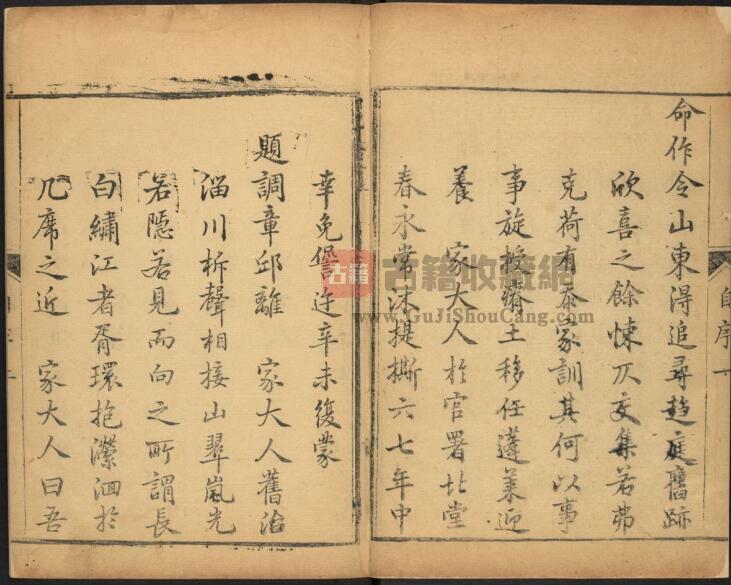 命作令山東得追尋趋庭舊跡
欣喜之餘悚仄交集若弗
克荷有忝家訓其何以事
事旋授瘠土移任蓬萊迎
養 家大人於官署北堂
春永常沐提撕六七年中
幸免愆迕辛未復蒙
題調章邱離 家大人舊治
淄川柝聲相接山翠嵐光
若隱若見而向之所謂長
白繡江者胥環抱瀠洄於
几席之近 家大人曰吾
自序
古籍
古籍收藏網
www.GuJiShouCang.com